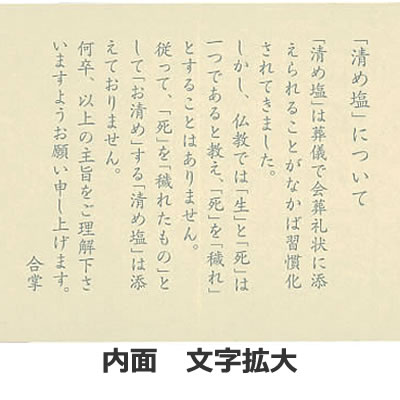 「清め塩」について
「清め塩」は葬儀で会葬礼状に添
えられることがなかば習慣化
されてきました。
しかし、仏教では「生」と「死」は
一つであると教え、「死」を「穢れ」
とすることはありません。
従って、「死」を「穢れたもの」と
して「お清め」する「清め塩」は添
えておりません。
何卒、以上の主旨をご理解下さ
いますようお願い申し上げます。
合掌
内面　文字拡大